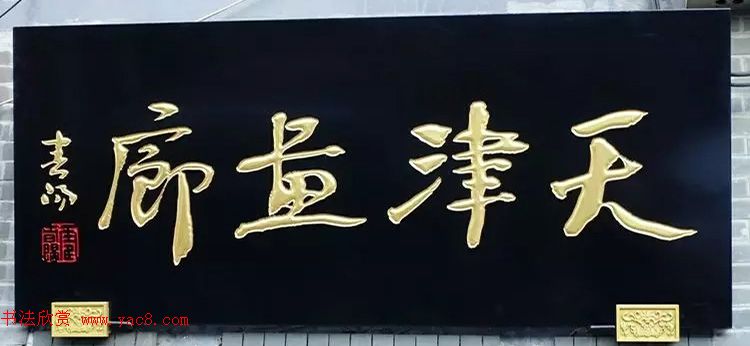 天津畫廊
书法欣赏 www.yac8.com